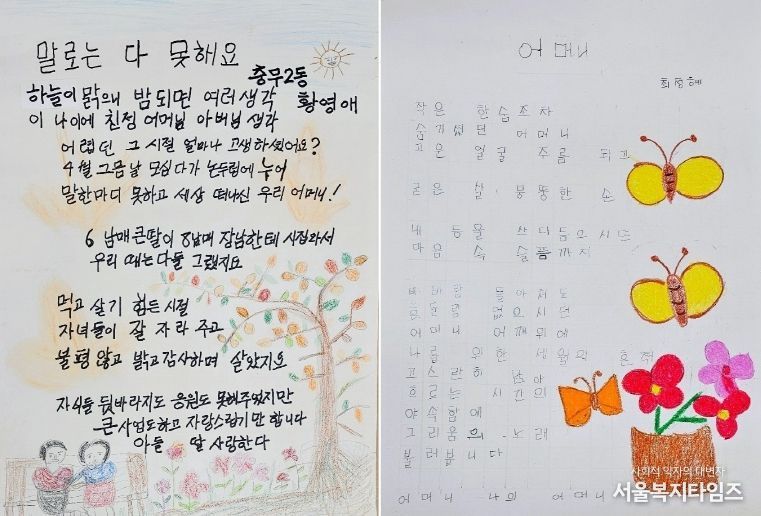 말로는 다 못해요
충무2동
황영애
하늘이 맑으니 밤되면 여러생각
이 나이에 친정 어머님 아버님 생각
어렵던 그 시절 얼마나 고생하셨어요?
4월 그믐날 모심다가 논두렁에 누어
말한마디 못하고 세상 떠나신 우리 어머니!
6남매 큰딸이 8남매 장남한테 시집와서
우리 때는 다들 그랬지요
먹고 살기 힘든 시절
자녀들이 잘 자라 주고
불평 않고 밝고 감사하며 살았지요
자식들 뒷바라지도 응원도 못해주었지만
큰 사업도하고 자랑스럽기만 합니다
아들 딸 사랑한다
어머니
최정혜
작은 한숨조차
숨기셨던 어머니
고운 얼굴 주름 되고
굳은 살 뭉뚱한 손
네 등을 쓰다듬으시던
마음 속 슬픔까지
비바람 몰아쳐도
흔들림 없으시던
어머니 어깨위에
나를 위한 세월의 흔적
고스란히 남아
흐르는 시간의
야속함에
그리움의 노래
불러봅니다
어머니 나의 어머니
사회적 약자의 대변자
서울복지타임즈